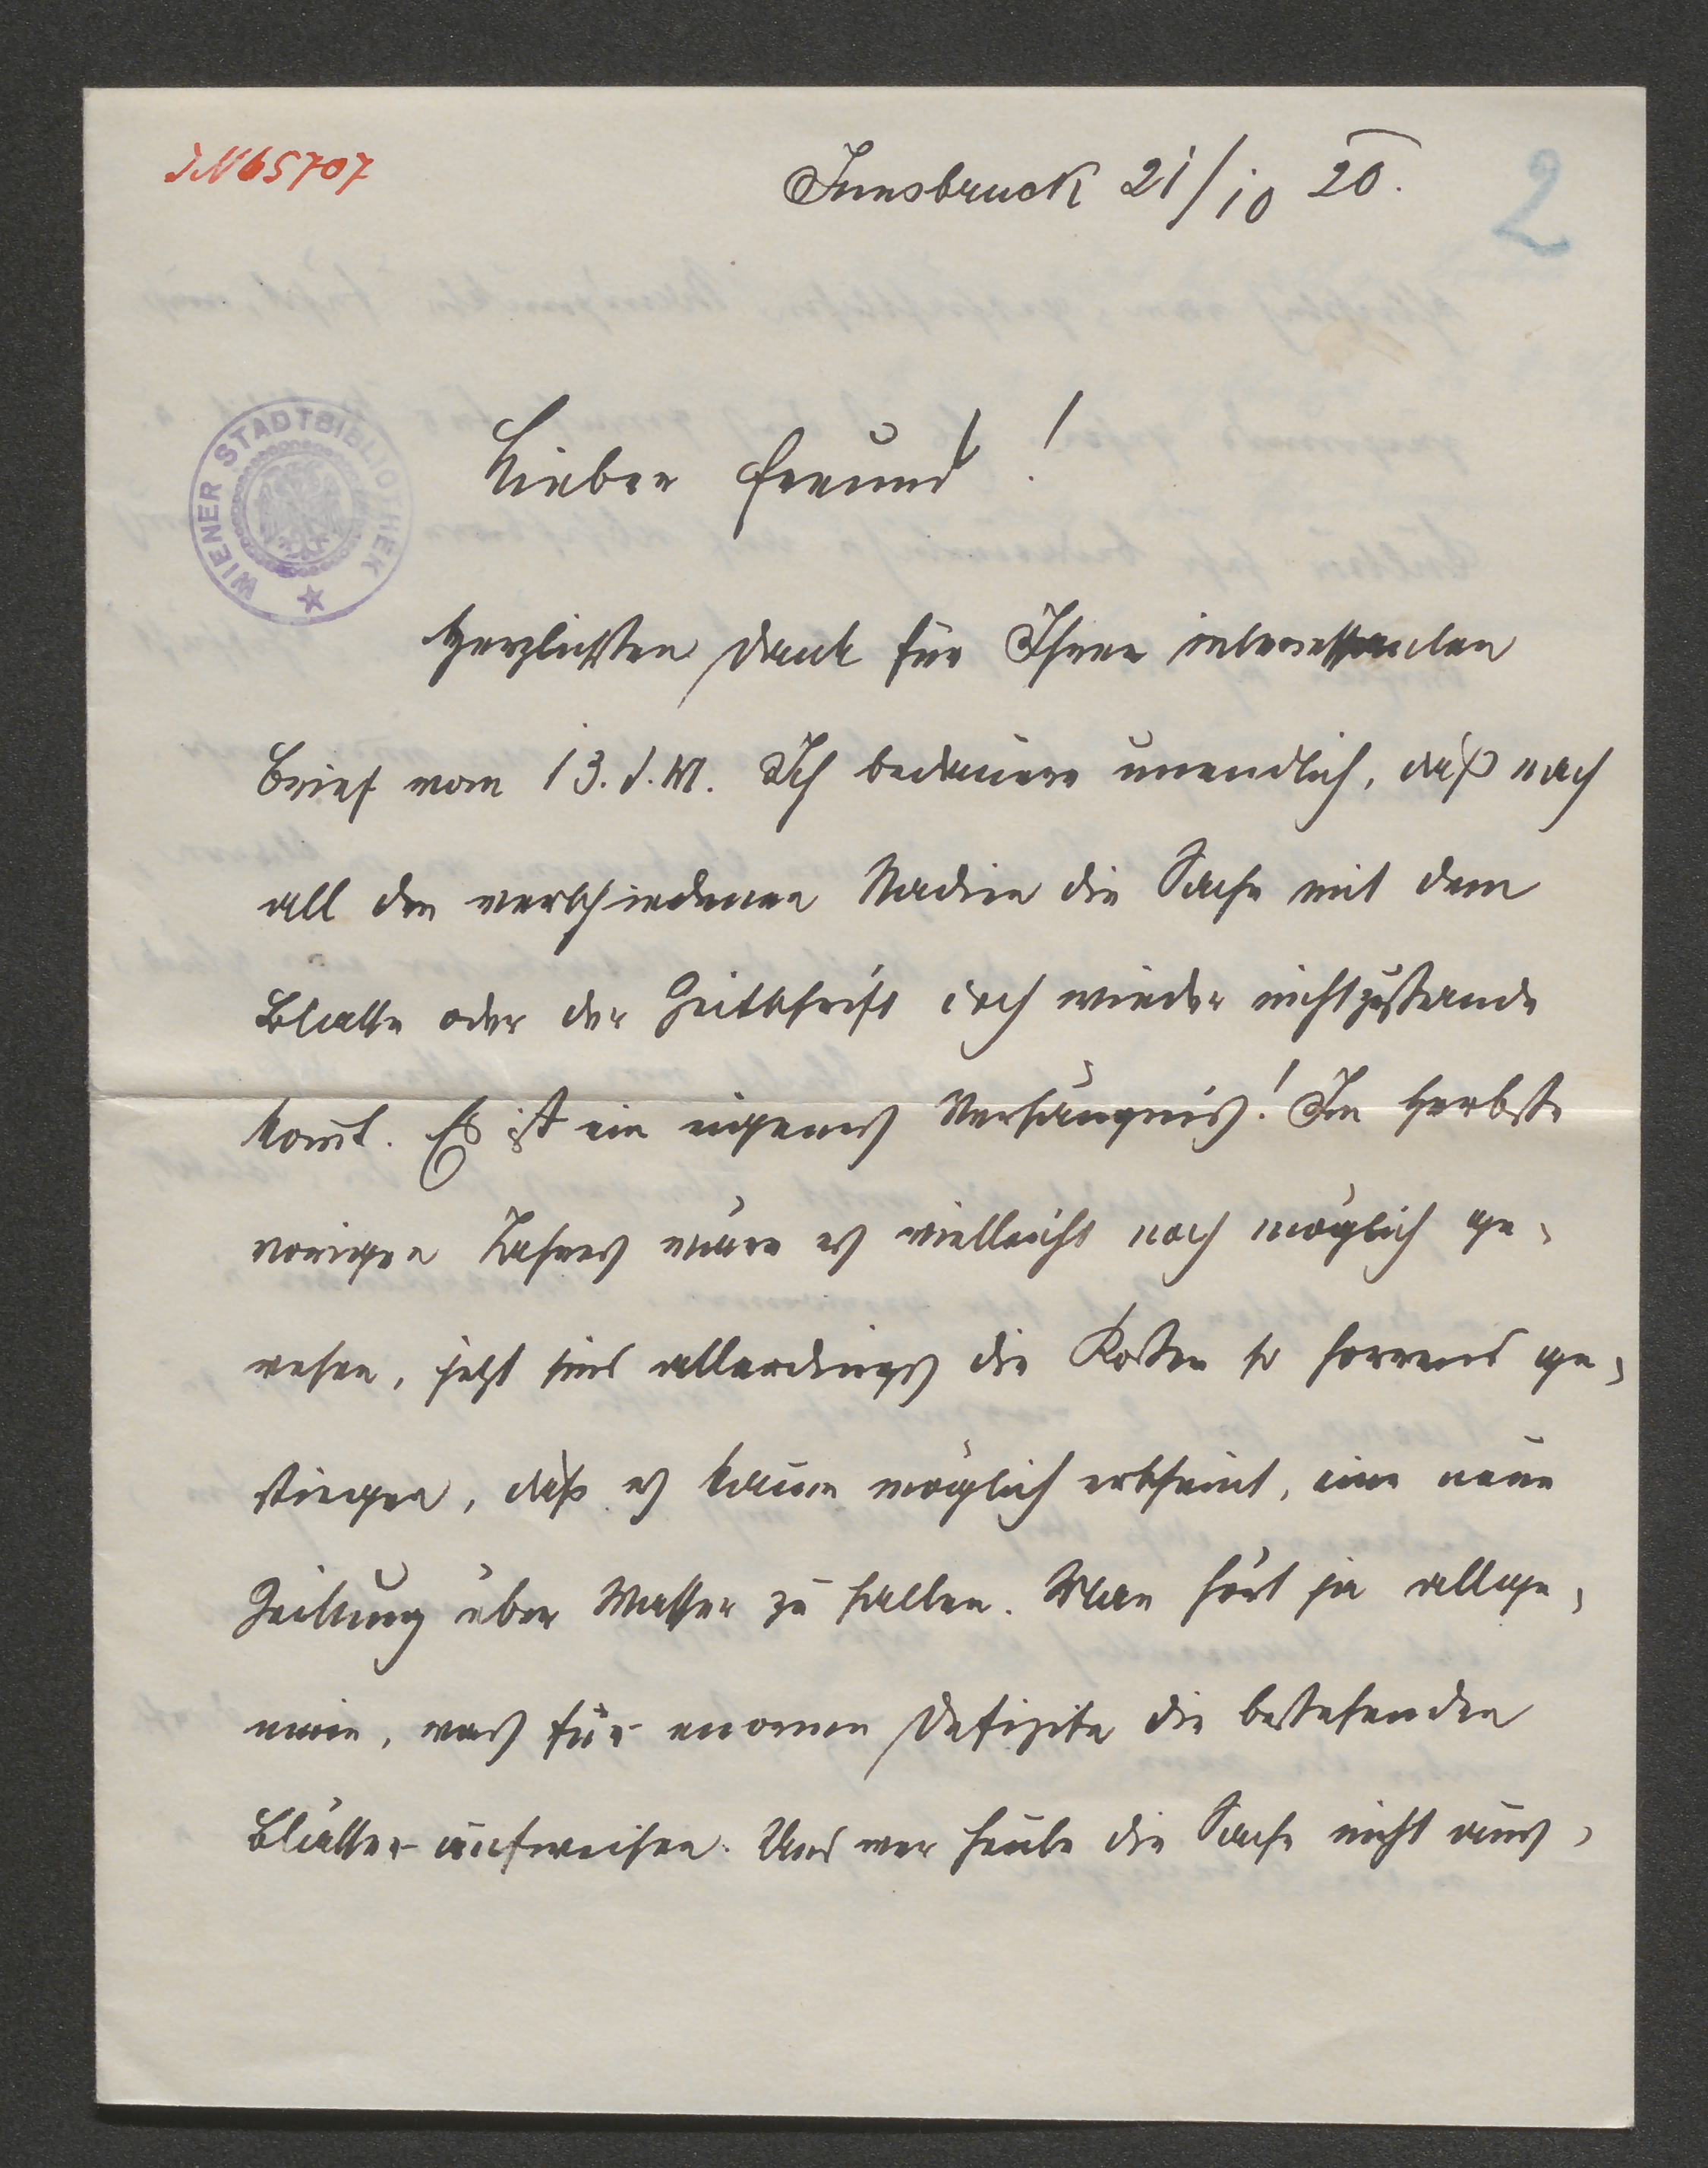 IN 65707
Innsbruck 21/10 20.
2
WIENER STADTBIBLIOTHEK
Lieber Freund!
Herzlichsten Dank für Ihren interessanten
Brief vom 13. d. M. Ich bedauere unendlich, daß nach
all den verschiedenen die Sache mit dem
Blatte oder der Zeitschrift doch wieder nicht zustande
kom̄t. Es ist ein eigenes Verhängnis! Im Herbste
vorigen Jahres wäre es vielleicht noch möglich ge-
wesen, jetzt sind allerdings die Kosten so horrend ge-
stiegen, daß es kaum möglich erscheint, eine neue
Zeitung über Wasser zu halten. Man hört ja allge-
mein, was für enorme Defizite die bestehenden
Blätter aufweisen. Und wer heute die Sache nicht aus-